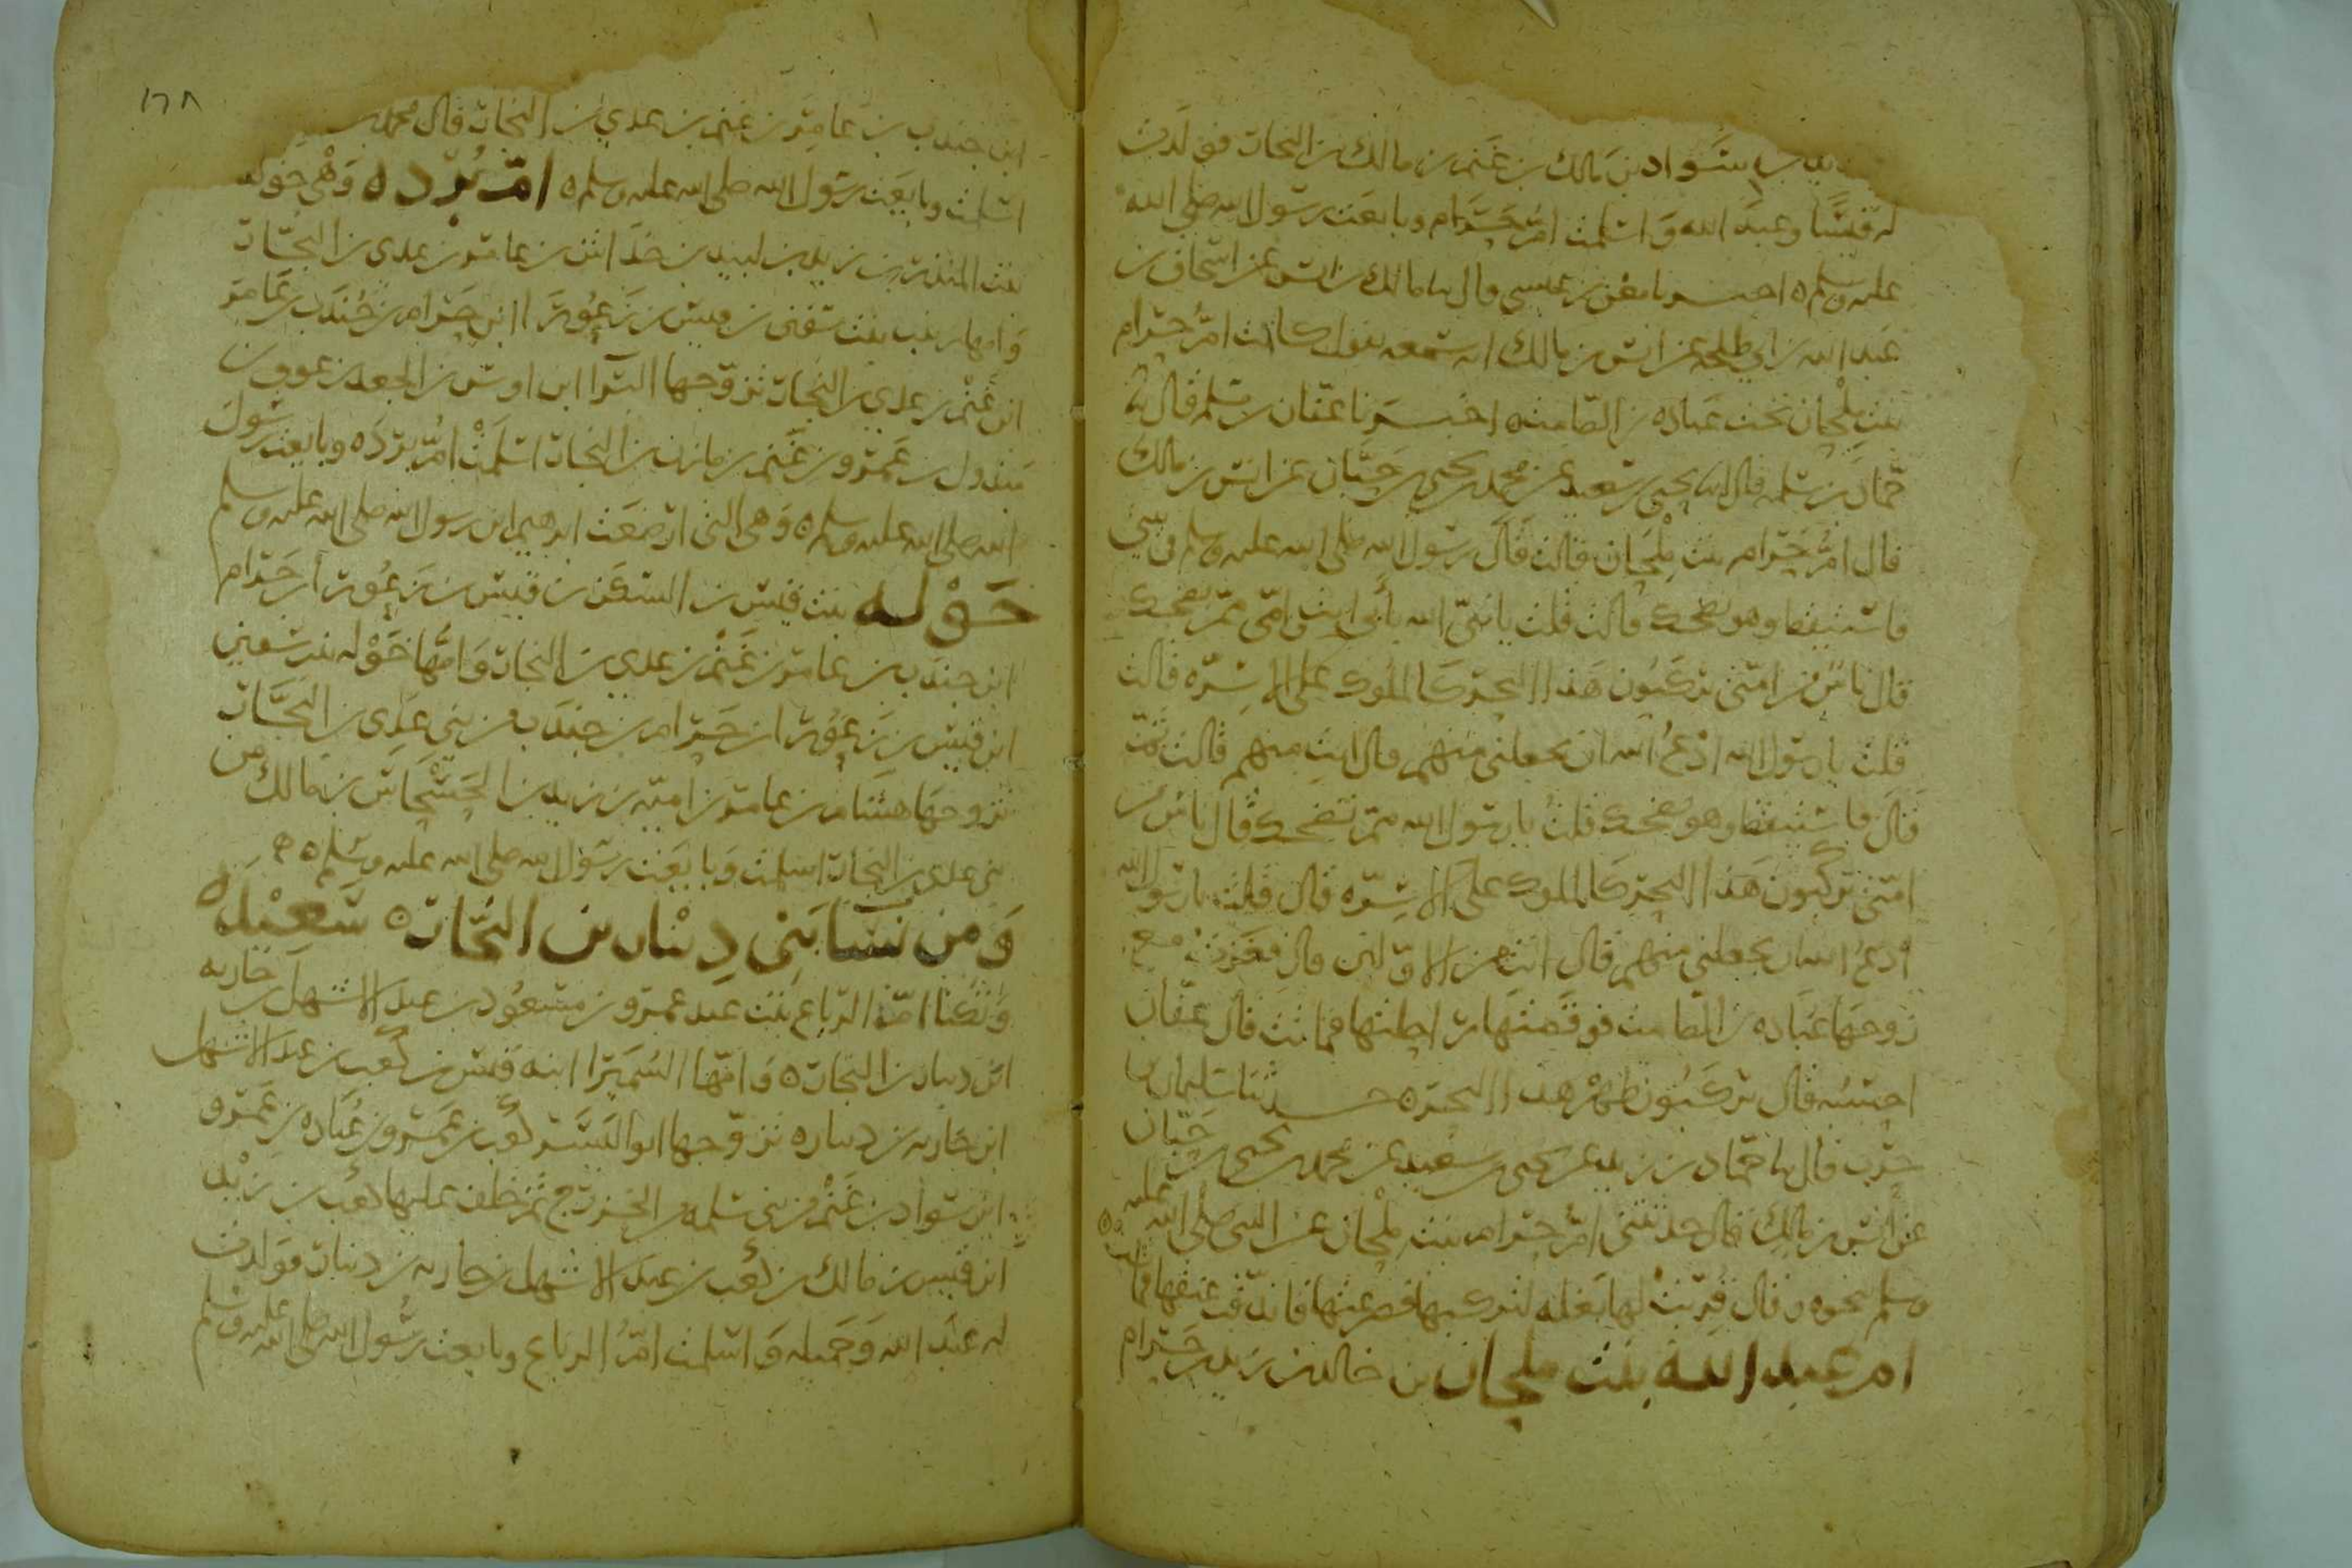 زيد بن سواد بن مالك بن غنم بن مالك بن النجار فولدت
له قيسا وعبد الله واسلمت ام حرام وبايعت رسول الله صلى الله
عليه وسلم ه اخبرنا معن بن عيسى قال نا مالك بن انس عن اسحاق بن
عبد الله بن ابي طلحة عن انس بن مالك انه سمعه يقول كانت ام حرام
بنت ملحان تحت عبادة بن الصامت ه اخبرنا عفان بن مسلم قال نا
حماد بن سلمة قال انا يحيى بن سعيد عن محمد بن يحيى بن حبان عن انس بن مالك
قال ام حرام بنت ملحان قالت قال رسول الله صلى الله عليه وسلم في بيتي
فاستيقظ وهو يضحك قالت قلت يا نبي الله بأبي انت وامي مم تضحك
قال ناس من امتي يركبون هذا البحر كالملوك على الاسرة قالت
قلت يا رسول الله ادع الله ان يجعلني منهم قال انت منهم قالت ثم
قال فاستيقظ وهو يضحك قلت يا رسول الله مم تضحك قال ناس من
امتي يركبون هذا البحر كالملوك على الاسرة قال قلت يا رسول الله
ادع الله ان يجعلني منهم قال انت من الاولين قال فغزت مع
زوجها عبادة بن الصامت فوقصتها راحلتها فماتت قال عفان
احسبه قال يركبون ظهر هذا البحر ه حدثنا سليمان بن
حرب قال نا حماد بن زيد عن يحيى بن سعيد عن محمد بن يحيى بن حبان
عن انس بن مالك قال حدثتني ام حرام بنت ملحان عن النبي صلى الله عليه
وسلم نحوه وقال قربت لها بغلة لتركبها فصرعتها فاندقت عنقها فماتت ه
ام عبد الله بنت ملحان بن خالد بن زيد بن حرام
ابن جندب بن عامر بن غنم بن عدي بن النجار قال محمد بن
اسلمت وبايعت رسول الله صلى الله عليه وسلم ه ام بردة ه وهي خولة
بنت المنذر بن زيد بن لبيد بن خداش بن عامر بن عدي بن النجار
وامها زينب بنت سفين بن قيس بن زعوراء ابن حرام بن جندب بن عامر
ابن غنم بن عدي بن النجار تزوجها البرا ابن اوس بن الجعد بن عوف بن
مبذول بن عمرو بن غنم بن مازن بن النجار اسلمت ام بردة وبايعت رسول
الله صلى الله عليه وسلم ه وهي التي ارضعت ابرهيم ابن رسول الله صلى الله عليه وسلم
خولة بنت قيس بن السكن بن قيس بن زعورا بن حرام
ابن جندب بن عامر بن غنم بن عدي بن النجار وامها خولة بنت سفين
ابن قيس بن زعورا بن حرام بن جندب من بني عدي بن النجار
تزوجها هشام بن عامر بن امية بن زيد بن الحسحاس بن مالك من
بني عدي بن النجار اسلمت وبايعت رسول الله صلى الله عليه وسلم ه
ومن نسا بني دينار بن النجار ه سعيدة
وتكنا ام الرياع بنت عبد عمرو بن مسعود بن عبد الاشهل بن حارثة
ابن دينار بن النجار ه وامها السميرا ابنة قيس بن كعب بن عبد الاشهل
ابن حارثة بن دينار ه تزوجها ابو اليسر كعب بن عمرو بن عبادة بن عمرو
ابن سواد بن غنم من بني سلمة من الخزرج ثم خلف عليها كعب بن زيد
ابن قيس بن مالك بن كعب بن عبد الاشهل بن حارثة بن دينار فولدت
له عبد الله وجميلة واسلمت ام الرياع وبايعت رسول الله صلى الله عليه وسلم